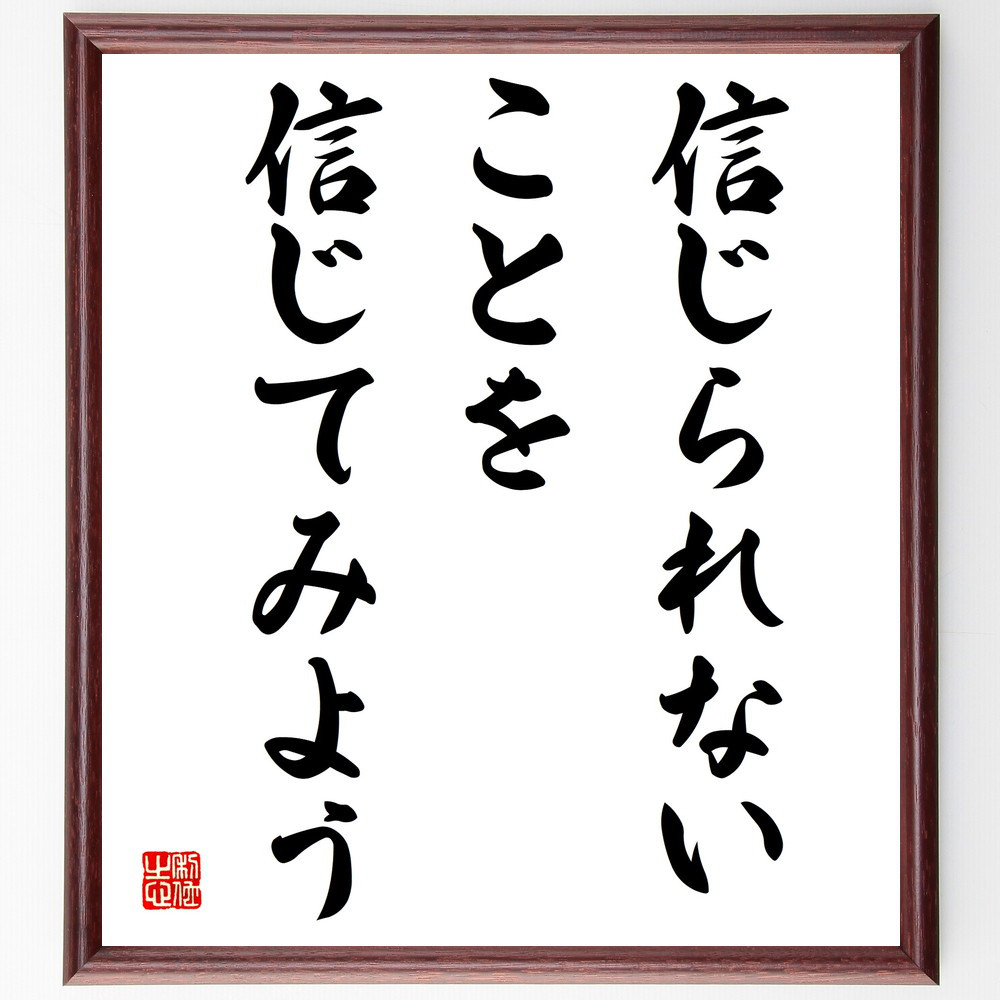 信じられない
ことを
信じてみよう